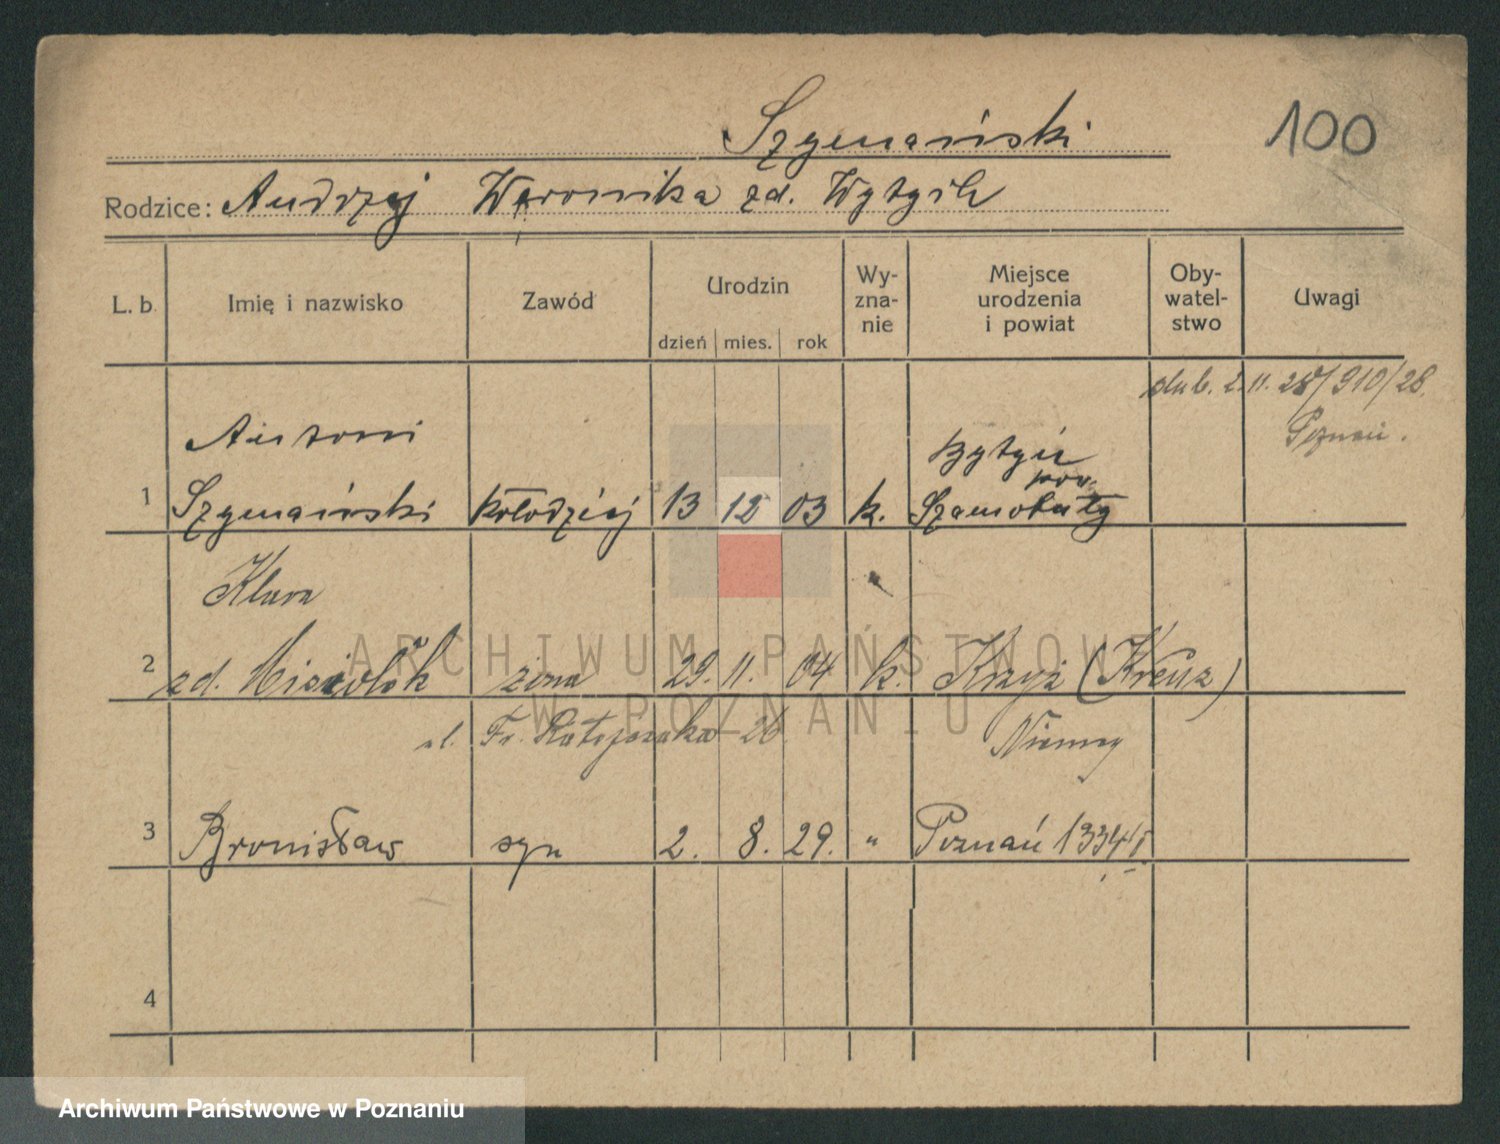 Szymański
100
Rodzice: Andrzej Weronika zd. Wytyk
L. b. Imię i nazwisko Zawód Urodzin dzień mies. rok Wy-zna-nie Miejsce urodzenia i powiat Oby-watel-stwo Uwagi
ślub. 2.11.28/910/28.
Poznań.
Antoni
1 Szymański kołodziej 13 12 03 k. Bytyń pow. Szamotuły
Klara
2 zd. żona 29. 11. 04 k. Krzyż (Kreuz)
ul. Fr. Ratajczaka 26 Niemcy
3 Bronisław syn 2. 8. 29. " Poznań
4
ARCHIWUM PAŃSTWOWE
W POZNANIU
Archiwum Państwowe w Poznaniu